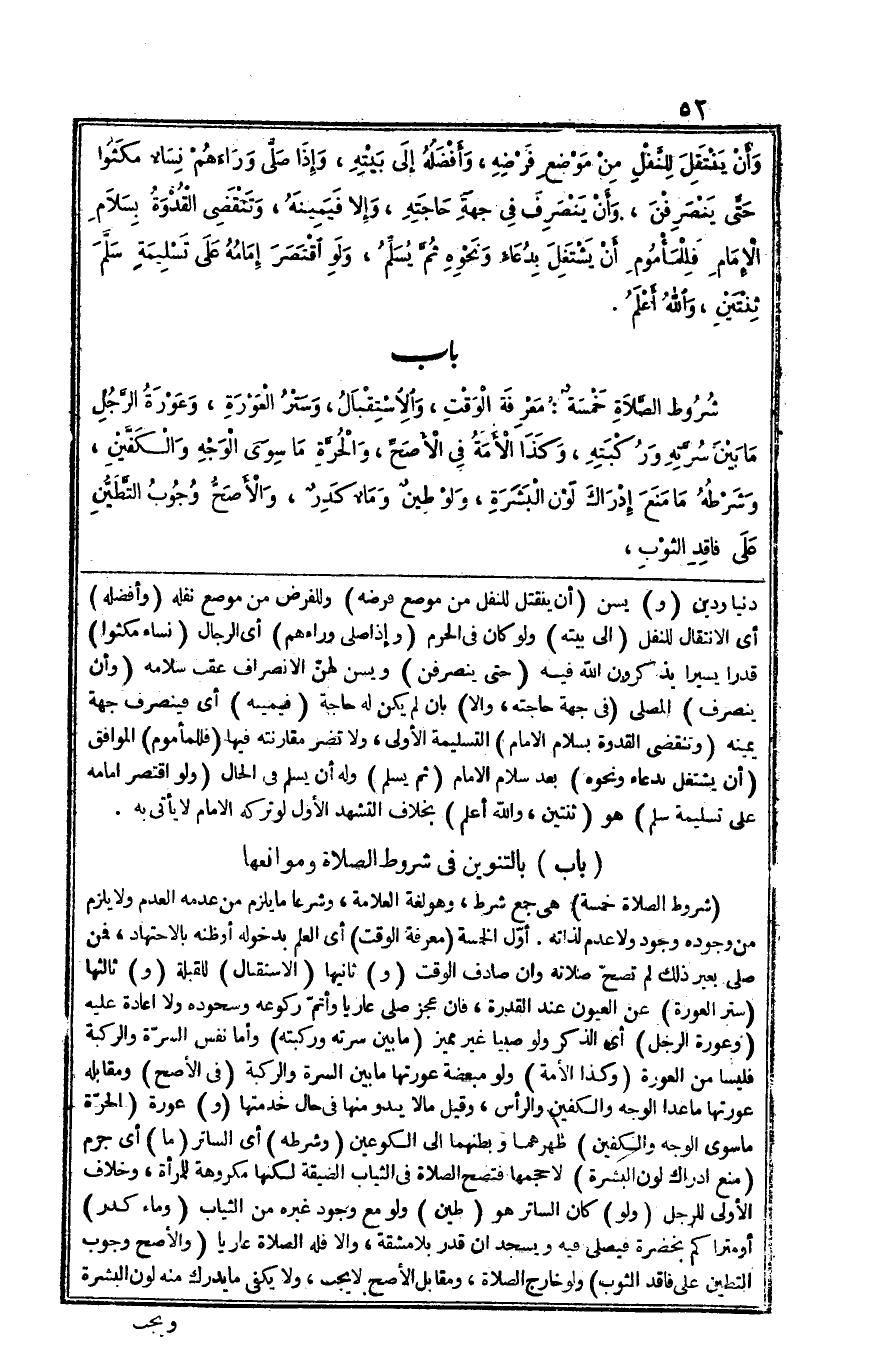 ٥٢
وَأَنْ يَنْتَقِلَ لِلنَّفْلِ مِنْ مَوْضِعِ فَرْضِهِ ، وَأَفْضَلُهُ إِلَى بَيْتِهِ ، وَإِذَا صَلَّى وَرَاءَهُمْ نِسَاءٌ مَكَثُوا
حَتَّى يَنْصَرِفْنَ ، وَأَنْ يَنْصَرِفَ فِي جِهَةِ حَاجَتِهِ ، وَإِلا فَيَمِينِهِ ، وَتَنْقَضِى الْقُدْوَةُ بِسَلَامِ
الْإِمَامِ فَلِلْمَأْمُومِ أَنْ يَشْتَغِلَ بِدُعَاءٍ وَنَحْوِهِ ثُمَّ يُسَلِّمُ ، وَلَوِ اقْتَصَرَ إِمَامُهُ عَلَى تَسْلِيمَةٍ سَلَّمَ
ثِنْتَيْنِ ، وَاللهُ أَعْلَمُ .
باب
شُرُوطُ الصَّلَاةِ خَمْسَةٌ : مَعْرِفَةُ الْوَقْتِ ، وَالِاسْتِقْبَالُ ، وَسَتْرُ الْعَوْرَةِ ، وَعَوْرَةُ الرَّجُلِ
مَا بَيْنَ سُرَّتِهِ وَرُكْبَتِهِ ، وَكَذَا الْأَمَةُ فِي الْأَصَحِّ ، وَالْحُرَّةِ مَا سِوَى الْوَجْهِ وَالْكَفَّيْنِ ،
وَشَرْطُهُ مَا مَنَعَ إِدْرَاكَ لَوْنِ الْبَشَرَةِ ، وَلَوْ طِينٌ وَمَاءٌ كَدِرٌ ، وَالْأَصَحُّ وُجُوبُ التَّطَيُّنِ
عَلَى فَاقِدِ الثَّوْبِ ،
دنيا ودين (و) يسن (أن ينتقل للنفل من موضع فرضه) وللفرض من موضع نفله (وأفضله)
أى الانتقال للنفل (الى بيته) ولو كان فى الحرم (وإذا صلى وراءهم) أى الرجال (نساء مكثوا)
قدرا يسيرا يذكرون الله فيه (حتى ينصرفن) ويسن لهنّ الانصراف عقب سلامه (وأن
ينصرف) المصلى (فى جهة حاجته ، والا) بان لم يكن له حاجة (فيمينه) أى فينصرف جهة
يمينه (وتنقضى القدوة بسلام الامام) التسليمة الأولى ، ولا تضر مقارنته فيها (فللمأموم) الموافق
(أن يشتغل بدعاء ونحوه) بعد سلام الامام (ثم يسلم) وله أن يسلم فى الحال (ولو اقتصر امامه
على تسليمة سلم) هو (ثنتين ، والله أعلم) بخلاف التشهد الأول لو تركه الامام لا يأتى به .
(باب) بالتنوين فى شروط الصلاة وموانعها
(شروط الصلاة خمسة) هى جمع شرط ، وهو لغة العلامة ، وشرعا مايلزم من عدمه العدم ولا يلزم
من وجوده وجود ولاعدم لذاته . أوّل الخمسة (معرفة الوقت) أى العلم بدخوله أو ظنه بالاجتهاد ، فمن
صلى بغير ذلك لم تصحّ صلاته وان صادف الوقت (و) ثانيها (الاستقبال) للقبلة (و) ثالثها
(ستر العورة) عن العيون عند القدرة ، فان عجز صلى عاريا وأتمّ ركوعه وسجوده ولا اعادة عليه
(وعورة الرجل) أى الذكر ولو صبيا غير مميز (مابين سرته وركبته) وأما نفس السرّة والركبة
فليسا من العورة (وكذا الأمة) ولو مبعضة عورتها مابين السرة والركبة (فى الأصح) ومقابله
عورتها ماعدا الوجه والكفين والرأس ، وقيل مالا يبدو منها فى حال خدمتها (و) عورة (الحرّة
ماسوى الوجه والكفين) ظهرهما وبطنهما الى الكوعين (وشرطه) أى الساتر (ما) أى جرم
(منع ادراك لون البشرة) لا حجمها فتصح الصلاة فى الثياب الضيقة لكنها مكروهة للمرأة ، وخلاف
الأولى للرجل (ولو) كان الساتر هو (طين) ولو مع وجود غيره من الثياب (وماء كدر)
أو متراكم بخضرة فيصلى فيه ويسجد ان قدر بلا مشقة ، والا فله الصلاة عاريا (والأصح وجوب
التطين على فاقد الثوب) ولو خارج الصلاة ، ومقابل الأصح لا يجب ، ولا يكفى مايدرك منه لون البشرة
ويجب